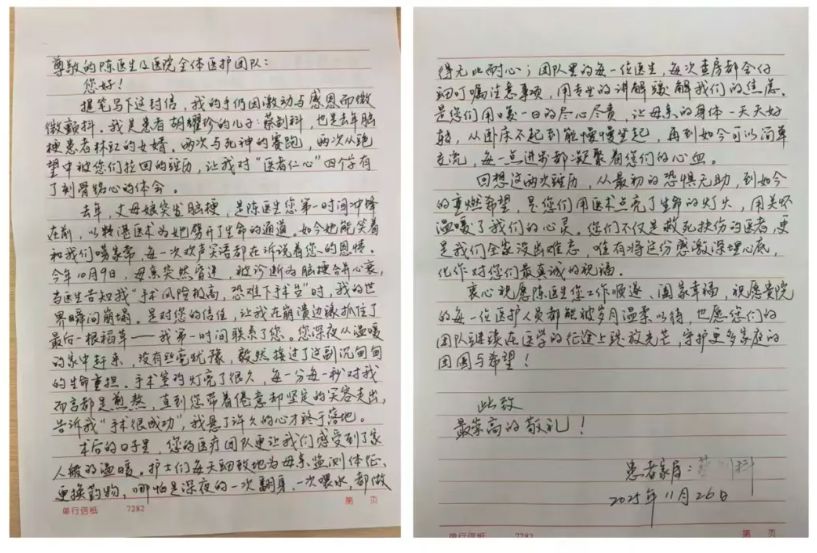 尊敬的陈医生及医院全体医护团队：
您好！
提笔写下这封信，我的手仍因激动与感恩而微
微颤抖。我是患者胡耀珍的儿子：蔡创科，也是去年脑
梗患者林红的女婿。两次与死神的赛跑，两次从绝
望中被您们拉回的经历，让我对“医者仁心”四个字有
了刻骨铭心的体会。
去年，丈母娘突发脑梗，是陈医生您第一时间冲锋
在前，以精湛医术为她劈开了生命的通道。如今她能笑着
和我们唠家常，每一次欢声笑语都在诉说着您的恩情。
今年10月9日，母亲突然昏迷，被诊断为脑梗合并心衰，
当医生告知我“手术风险极高，恐难下手术台”时，我的世
界瞬间崩塌。是对您的信任，让我在崩溃边缘抓住了
最后一根稻草——我第一时间联系了您。您深夜从温暖
的家中赶来，没有丝毫犹豫，毅然接过了这副沉甸甸
的生命重担。手术室的灯亮了很久，每一分每一秒对我
而言都是煎熬，直到您带着倦意却坚定的笑容走出，
告诉我“手术很成功”，我悬了许久的心才终于落地。
术后的日子里，您的医疗团队更让我们感受到了家
人般的温暖。护士们每天细致地为母亲监测体征、
更换药物，哪怕是深夜的一次翻身、一次喂水，都做
单行信纸 7282 第 页
得无比耐心；团队里的每一位医生，每次查房都会仔
细叮嘱注意事项，用专业的讲解缓解我们的焦虑。
是您们日复一日的尽心尽责，让母亲的身体一天天好
转，从卧床不起到能慢慢坐起，再到如今可以简单
交流，每一点进步都凝聚着您们的心血。
回想这两次经历，从最初的恐惧无助，到如今
的重燃希望，是您们用医术点亮了生命的灯火，用关怀
温暖了我们的心灵。您们不仅是救死扶伤的医者，更
是我们全家没出难忘，唯有将这份感激深埋心底，
化作对您们最真诚的祝福。
衷心祝愿陈医生您工作顺遂、阖家幸福，祝愿贵院
的每一位医护人员都能被岁月温柔以待，也愿您们的
团队继续在医学的征途上绽放光芒，守护更多家庭的
团圆与希望！
此致
最崇高的敬礼！
患者家属：蔡创科
2025年11月26日
单行信纸 7282 第 页